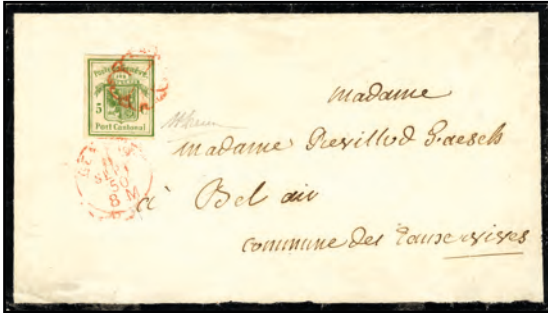 Poste Genève
5
Port Cantonal
SEPT
50
8 M
madame
madame Revilliod
à Bel air
commune des Eauxe vives